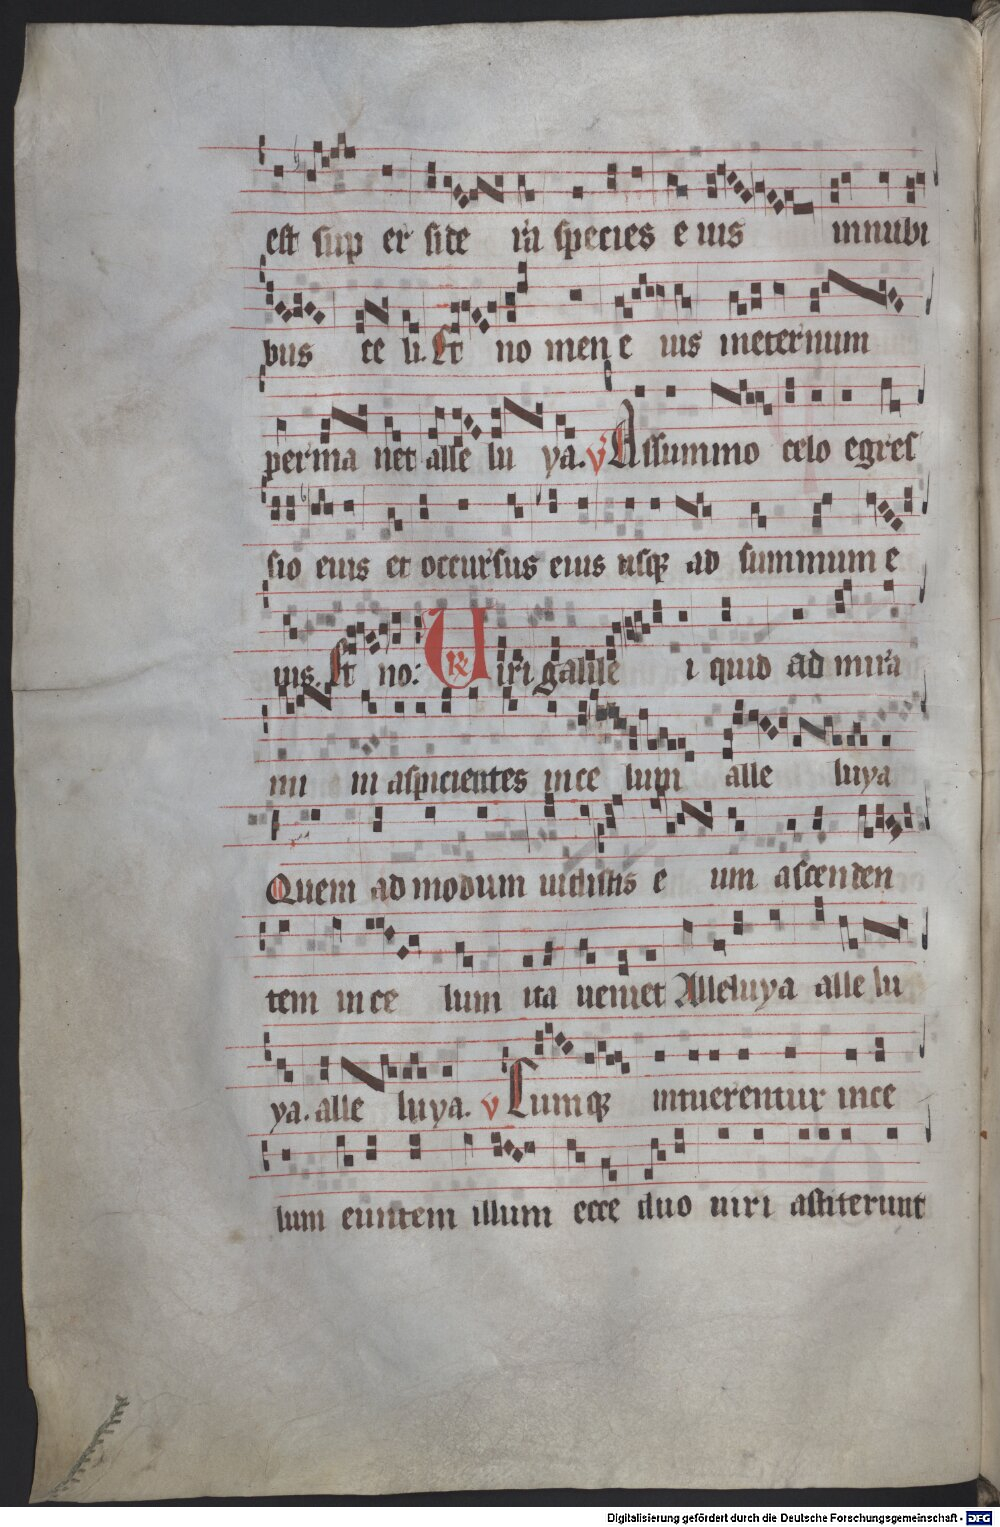 est sup er side ra species e ius innubi
bus ce li. Et no men e ius ineternum
perma net alle lu ya. v Assummo celo egres
sio eius et occursus eius usq ad summum e
ius. Et no: Uiri galile i quid ad mira
mi ni in aspicientes in ce lum alle luya
Quem ad modum uidistis e um ascenden
tem in ce lum ita ueniet Alleluya alle lu
ya. alle luya. v Cumq intuerentur in ce
lum euntem illum ecce duo uiri astiterunt
Digitalisierung gefördert durch die Deutsche Forschungsgemeinschaft - DFG